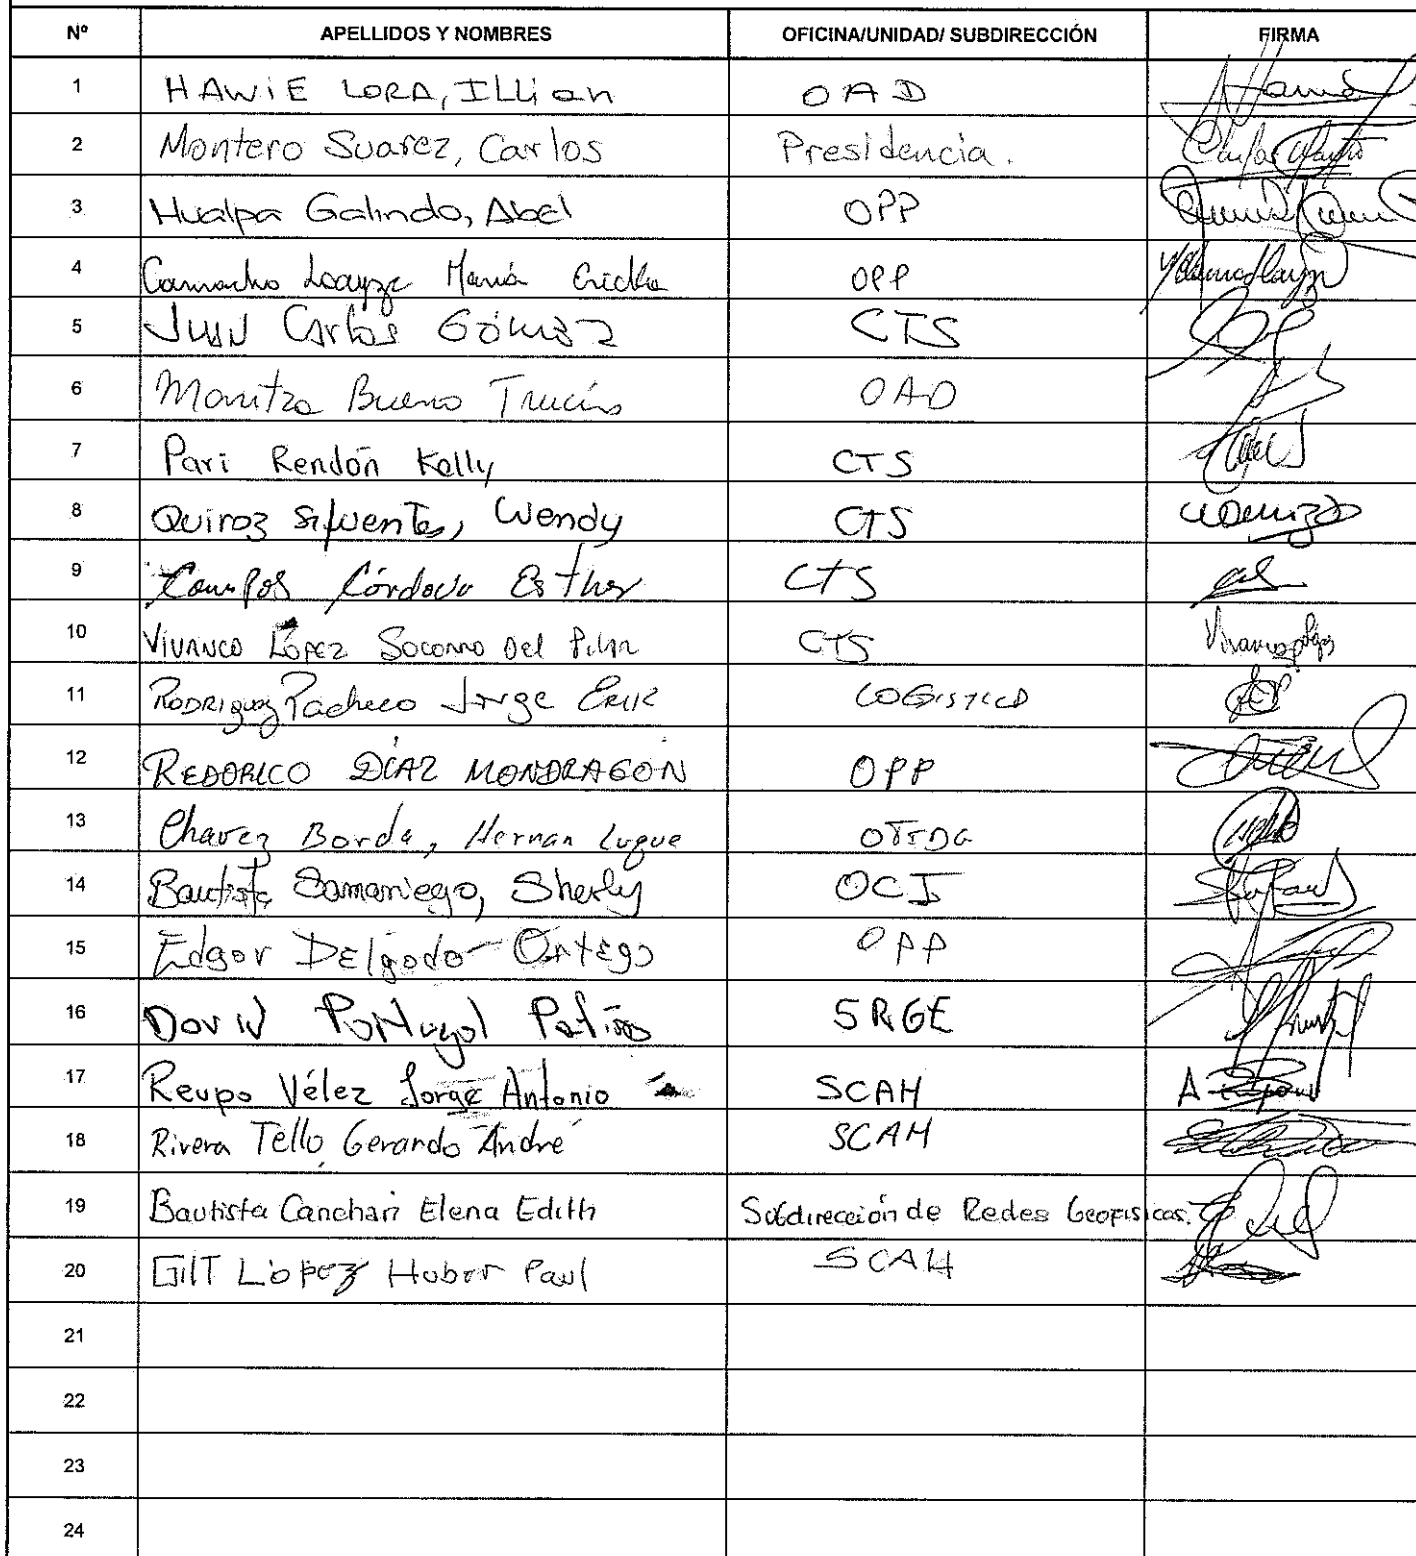 Nº APELLIDOS Y NOMBRES OFICINA/UNIDAD/ SUBDIRECCIÓN FIRMA
1 HAWIE LORA, ILLian OAD
2 Montero Suarez, Carlos Presidencia.
3 Hualpa Galindo, Abel OPP
4 Camacho Loayza María Ericka OPP
5 Juan Carlos Gómez CTS
6 Maritza Bueno Trucios OAD
7 Pari Rendón Kelly CTS
8 Quiroz Sifuentes, Wendy CTS
9 Campos Córdova Esther CTS
10 Vivanco López Socorro Del Pilar CTS
11 Rodriguez Pacheco Jorge Erik LOGISTICA
12 REDORICO DÍAZ MONDRAGON OPP
13 Chavez Borda, Hernan Luque OTIDG
14 Bautista Samaniego, Sherly OCI
15 Edgar Delgado Ortega OPP
16 David Portugal Patiño SRGE
17 Reupo Vélez Jorge Antonio SCAH
18 Rivera Tello Gerardo André SCAH
19 Bautista Canchari Elena Edith Subdirección de Redes Geofísicas.
20 Gilt López Huber Paul SCAH
21
22
23
24